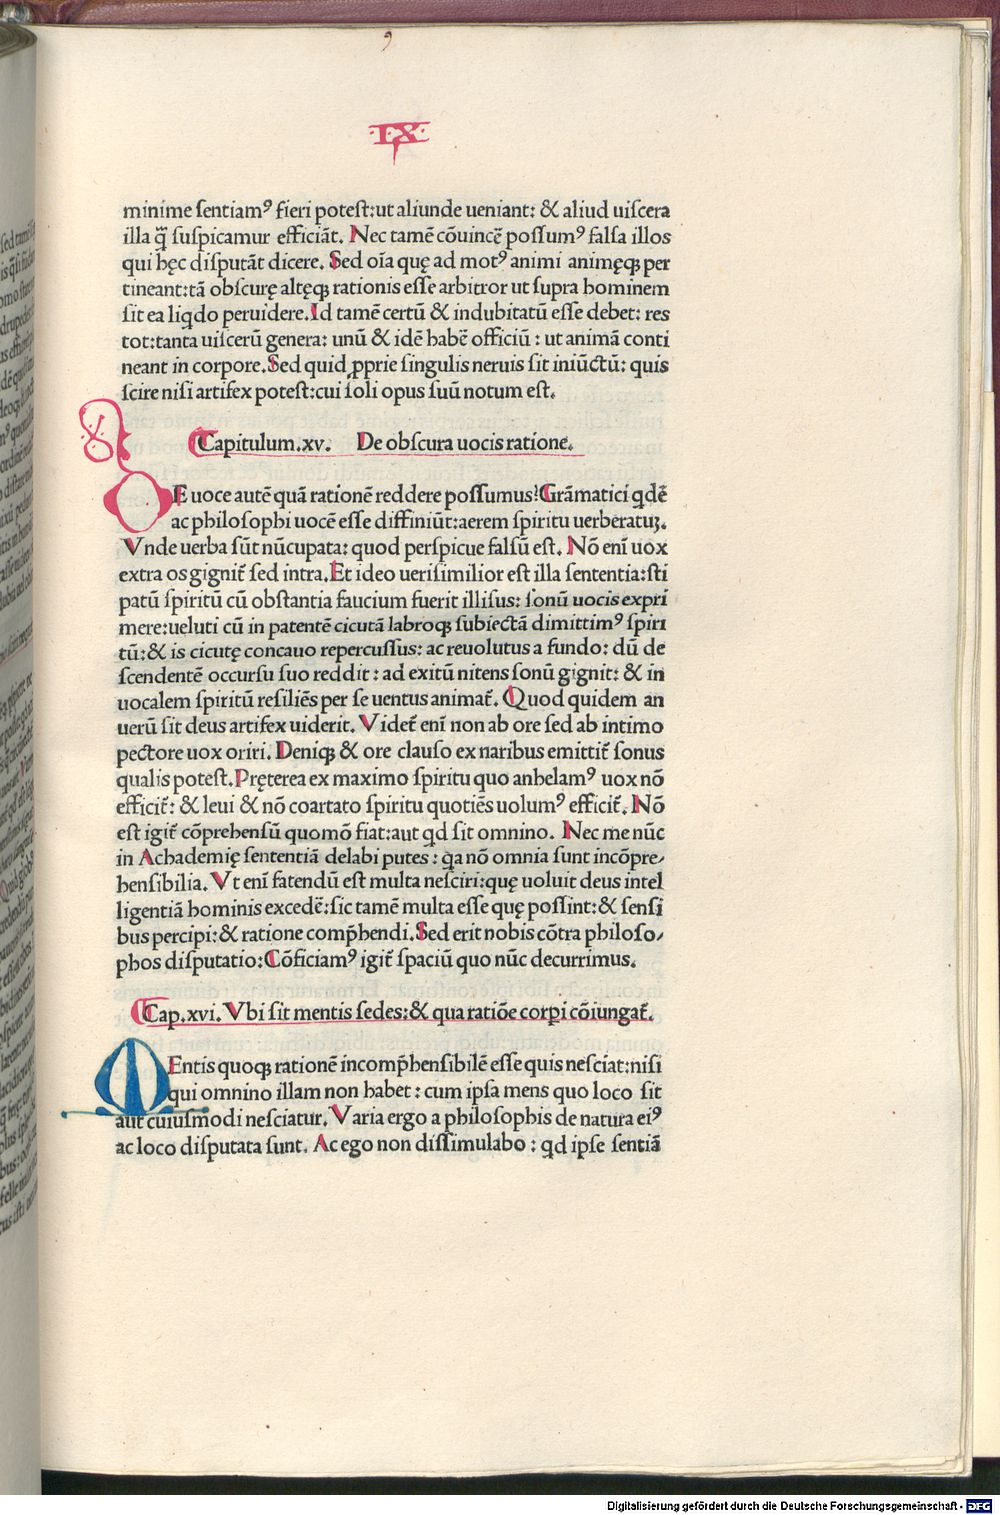 ·IX·
minime ſentiamꝰ fieri poteſt:ut aliunde ueniant: & aliud uiſcera
illa q̄ ſuſpicamur efficiāt. Nec tamē cōuincē poſſumꝰ falſa illos
qui hęc diſputāt dicere. Sed oīa quę ad motꝰ animi animęqꝫ per
tineant:tā obſcurę altęqꝫ rationis eſſe arbitror ut ſupra hominem
ſit ea liqdo peruidere.Id tamē certū & indubitatū eſſe debet: res
tot:tanta uiſcerū genera: unū & idē habē officiū : ut animā conti
neant in corpore.Sed quid ꝓprie ſingulis neruis ſit iniūctū: quis
ſcire niſi artifex poteſt:cui ſoli opus ſuū notum eſt.
Capitulum.xv. De obſcura uocis ratione.
DE uoce autē quā rationē reddere poſſumus?Grāmatici qdē
ac philoſophi uocē eſſe diffiniūt:aerem ſpiritu uerberatuꝫ.
Vnde uerba ſūt nūcupata: quod perſpicue falſū eſt. Nō enī uox
extra os gignit̄ ſed intra.Et ideo ueriſimilior eſt illa ſententia:ſti
patū ſpiritū cū obſtantia faucium fuerit illiſus: ſonū uocis expri
mere:ueluti cū in patentē cicutā labroqꝫ ſubiectā dimittimꝰ ſpiri
tū:& is cicutę concauo repercuſſus: ac reuolutus a fundo: dū de
ſcendentē occurſu ſuo reddit : ad exitū nitens ſonū gignit: & in
uocalem ſpiritū reſiliēs per ſe uentus animat̄. Quod quidem an
uerū ſit deus artifex uiderit. Videt̄ enī non ab ore ſed ab intimo
pectore uox oriri. Deniqꝫ & ore clauſo ex naribus emittit̄ ſonus
qualis poteſt.Pręterea ex maximo ſpiritu quo anhelamꝰ uox nō
efficit̄: & leui & nō coartato ſpiritu quotiēs uolumꝰ efficit̄. Nō
eſt igit̄ cōprehenſū quomō fiat:aut qd ſit omnino. Nec me nūc
in Achademię ſententiā delabi putes : qa nō omnia ſunt incōpre⸗
henſibilia. Vt enī fatendū eſt multa neſciri:quę uoluit deus intel
ligentiā hominis excedē:ſic tamē multa eſſe quę poſſint:& ſenſi
bus percipi:& ratione comp̄hendi.Sed erit nobis cōtra philoſo⸗
phos diſputatio:Cōficiamꝰ igit̄ ſpaciū quo nūc decurrimus.
Cap.xvi. Vbi ſit mentis ſedes:& qua ratiōe corpi cōiungat̄.
MEntis quoqꝫ rationē incomp̄henſibilē eſſe quis neſciat:niſi
qui omnino illam non habet : cum ipſa mens quo loco ſit
aut cuiuſmodi neſciatur. Varia ergo a philoſophis de natura eiꝰ
ac loco diſputata ſunt. Ac ego non diſſimulabo : qd ipſe ſentiā
Digitalisierung gefördert durch die Deutsche Forschungsgemeinschaft - DFG